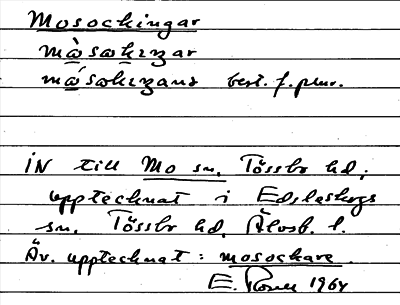 Mosockingar
mɷ̀sɷkiŋar
mɷ́sɷkiŋanạ best. f. plur.
IN till Mo sn, Tössbo hd,
upptecknat i Edsleskogs
sn, Tössbo hd, Älvsb. l.
Äv. upptecknat: mosockare.
E. 1964